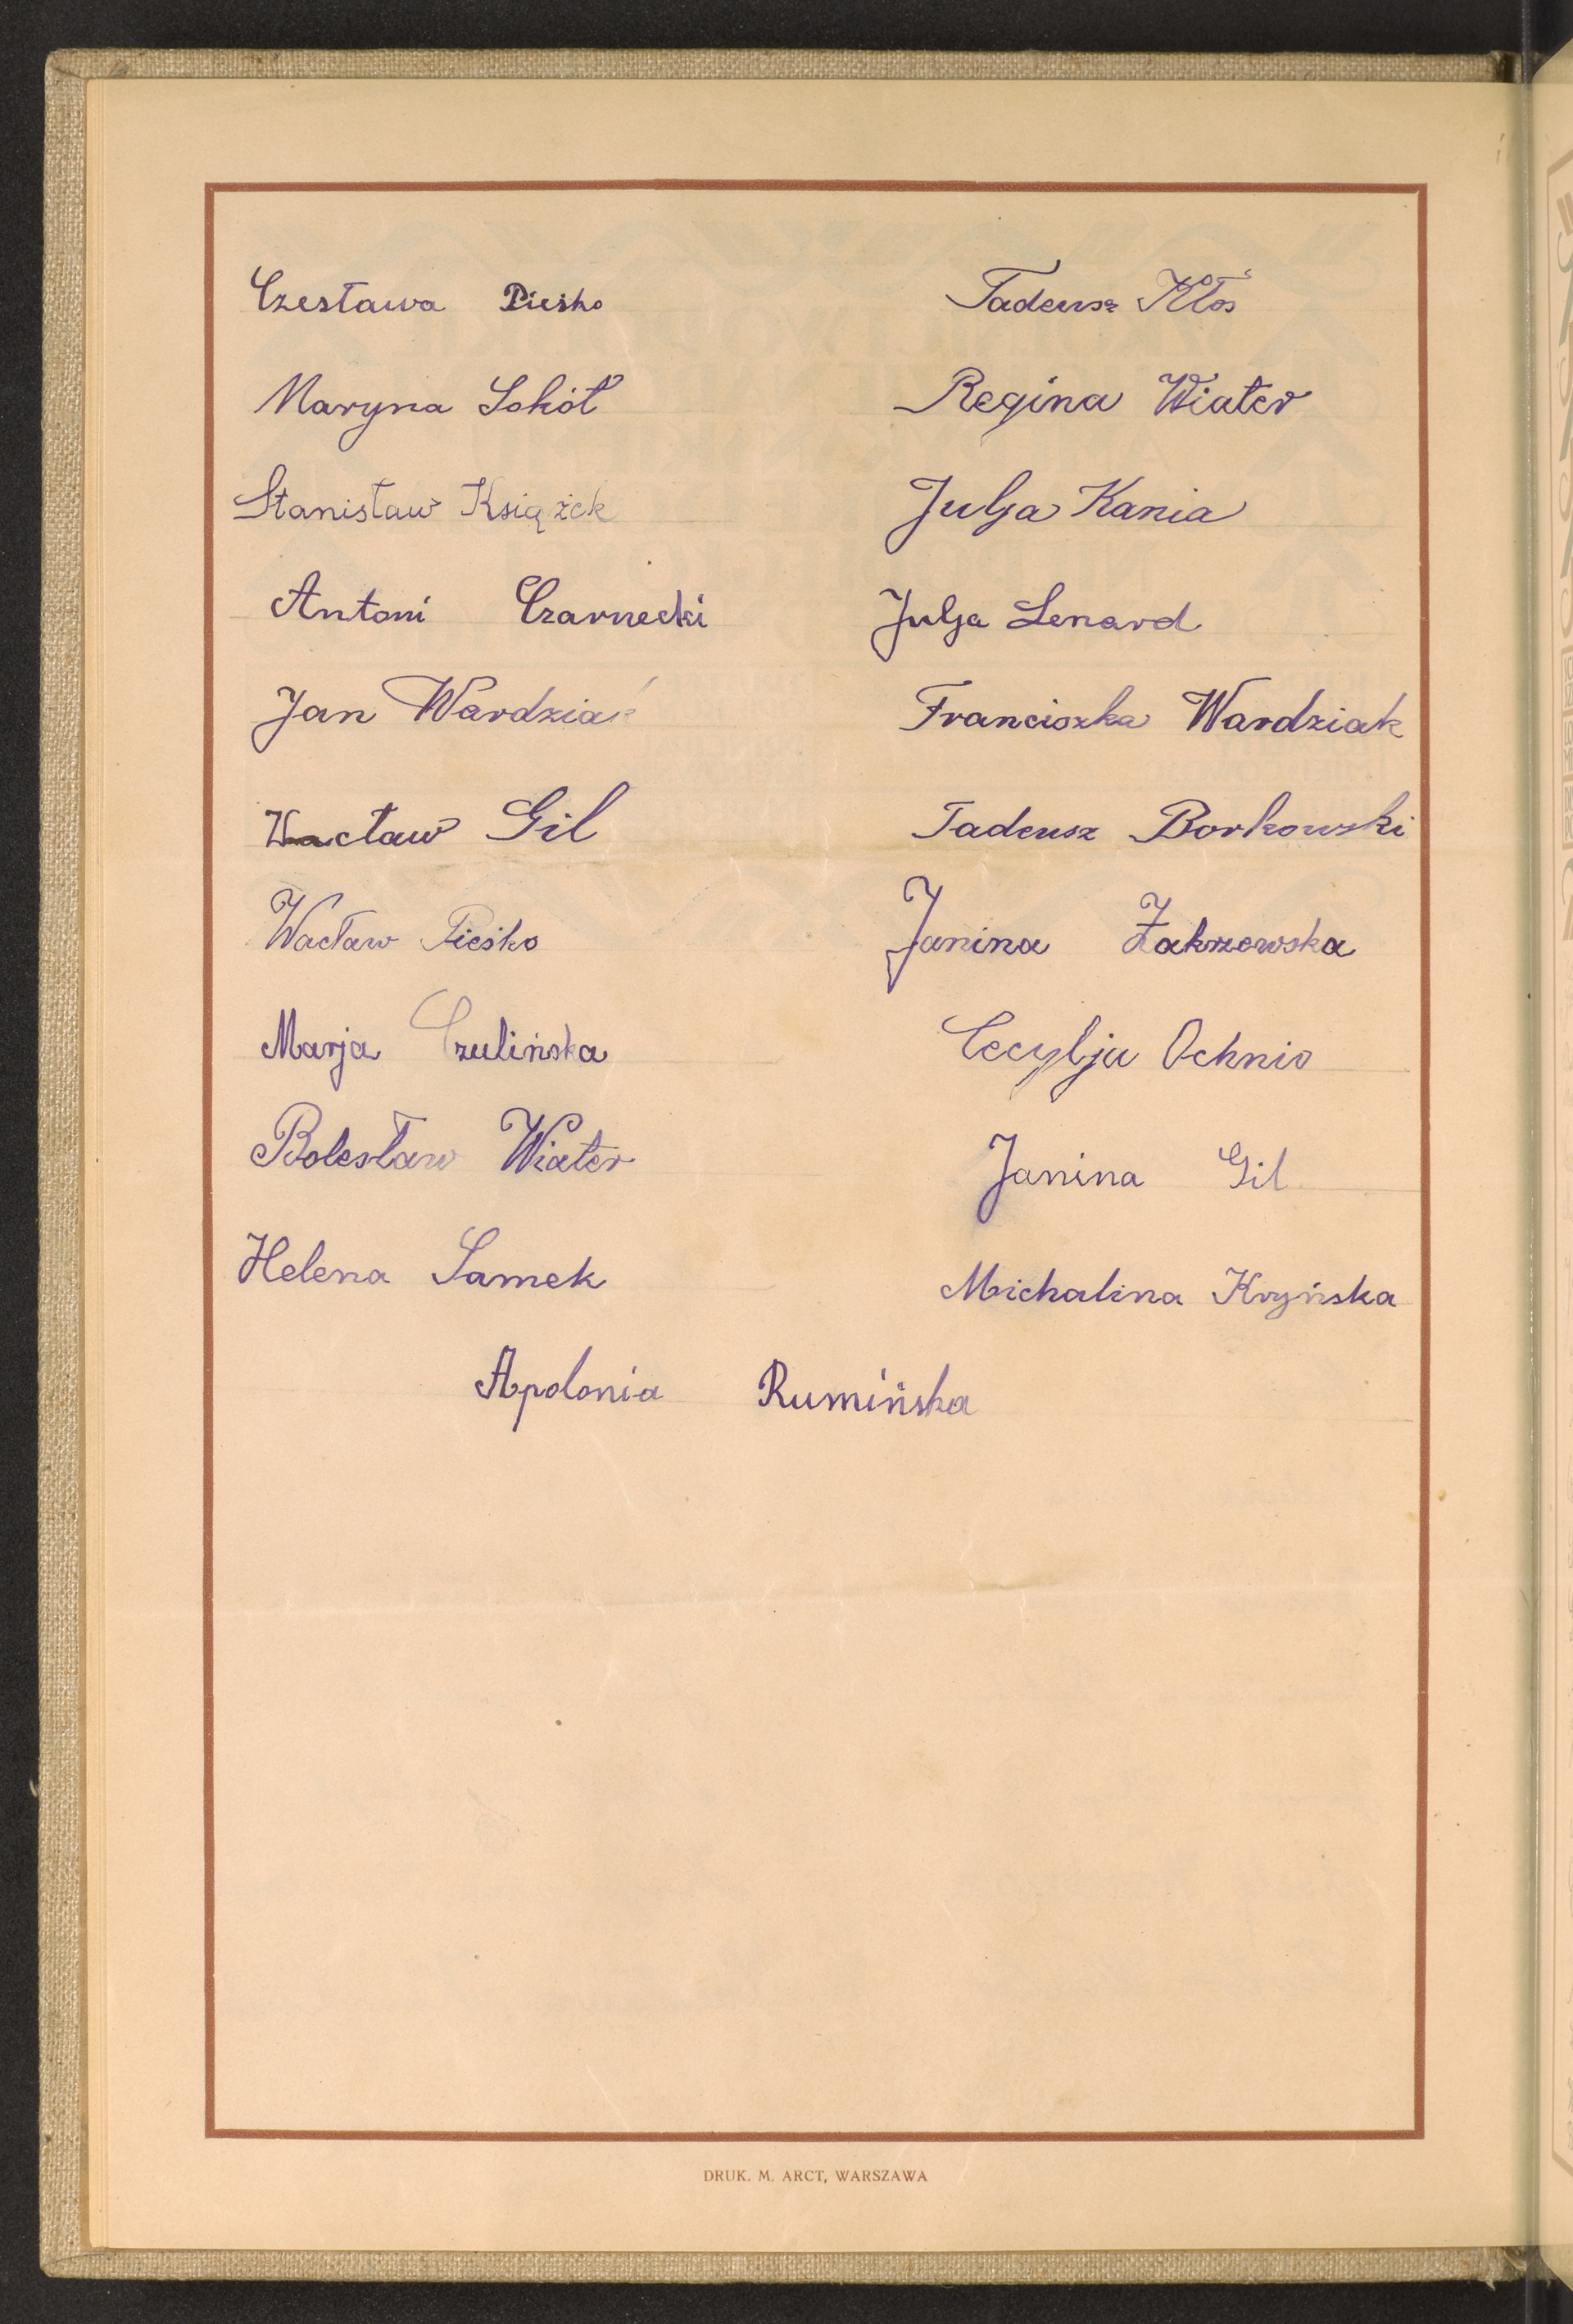 Czesława Pieśko
Tadeusz Kłoś
Maryna Sokół
Regina Wiater
Stanisław Książek
Julja Kania
Antoni Czarnecki
Julja Lenard
Jan Wardziak
Franciszka Wardziak
Wacław Gil
Tadeusz Borkowski
Wacław Pieśko
Janina Zakrzewska
Marja Czulińska
Cecylja Ochnio
Bolesław Wiater
Janina Gil
Helena Samek
Michalina Kryńska
Apolonia Rumińska
DRUK. M. ARCT, WARSZAWA